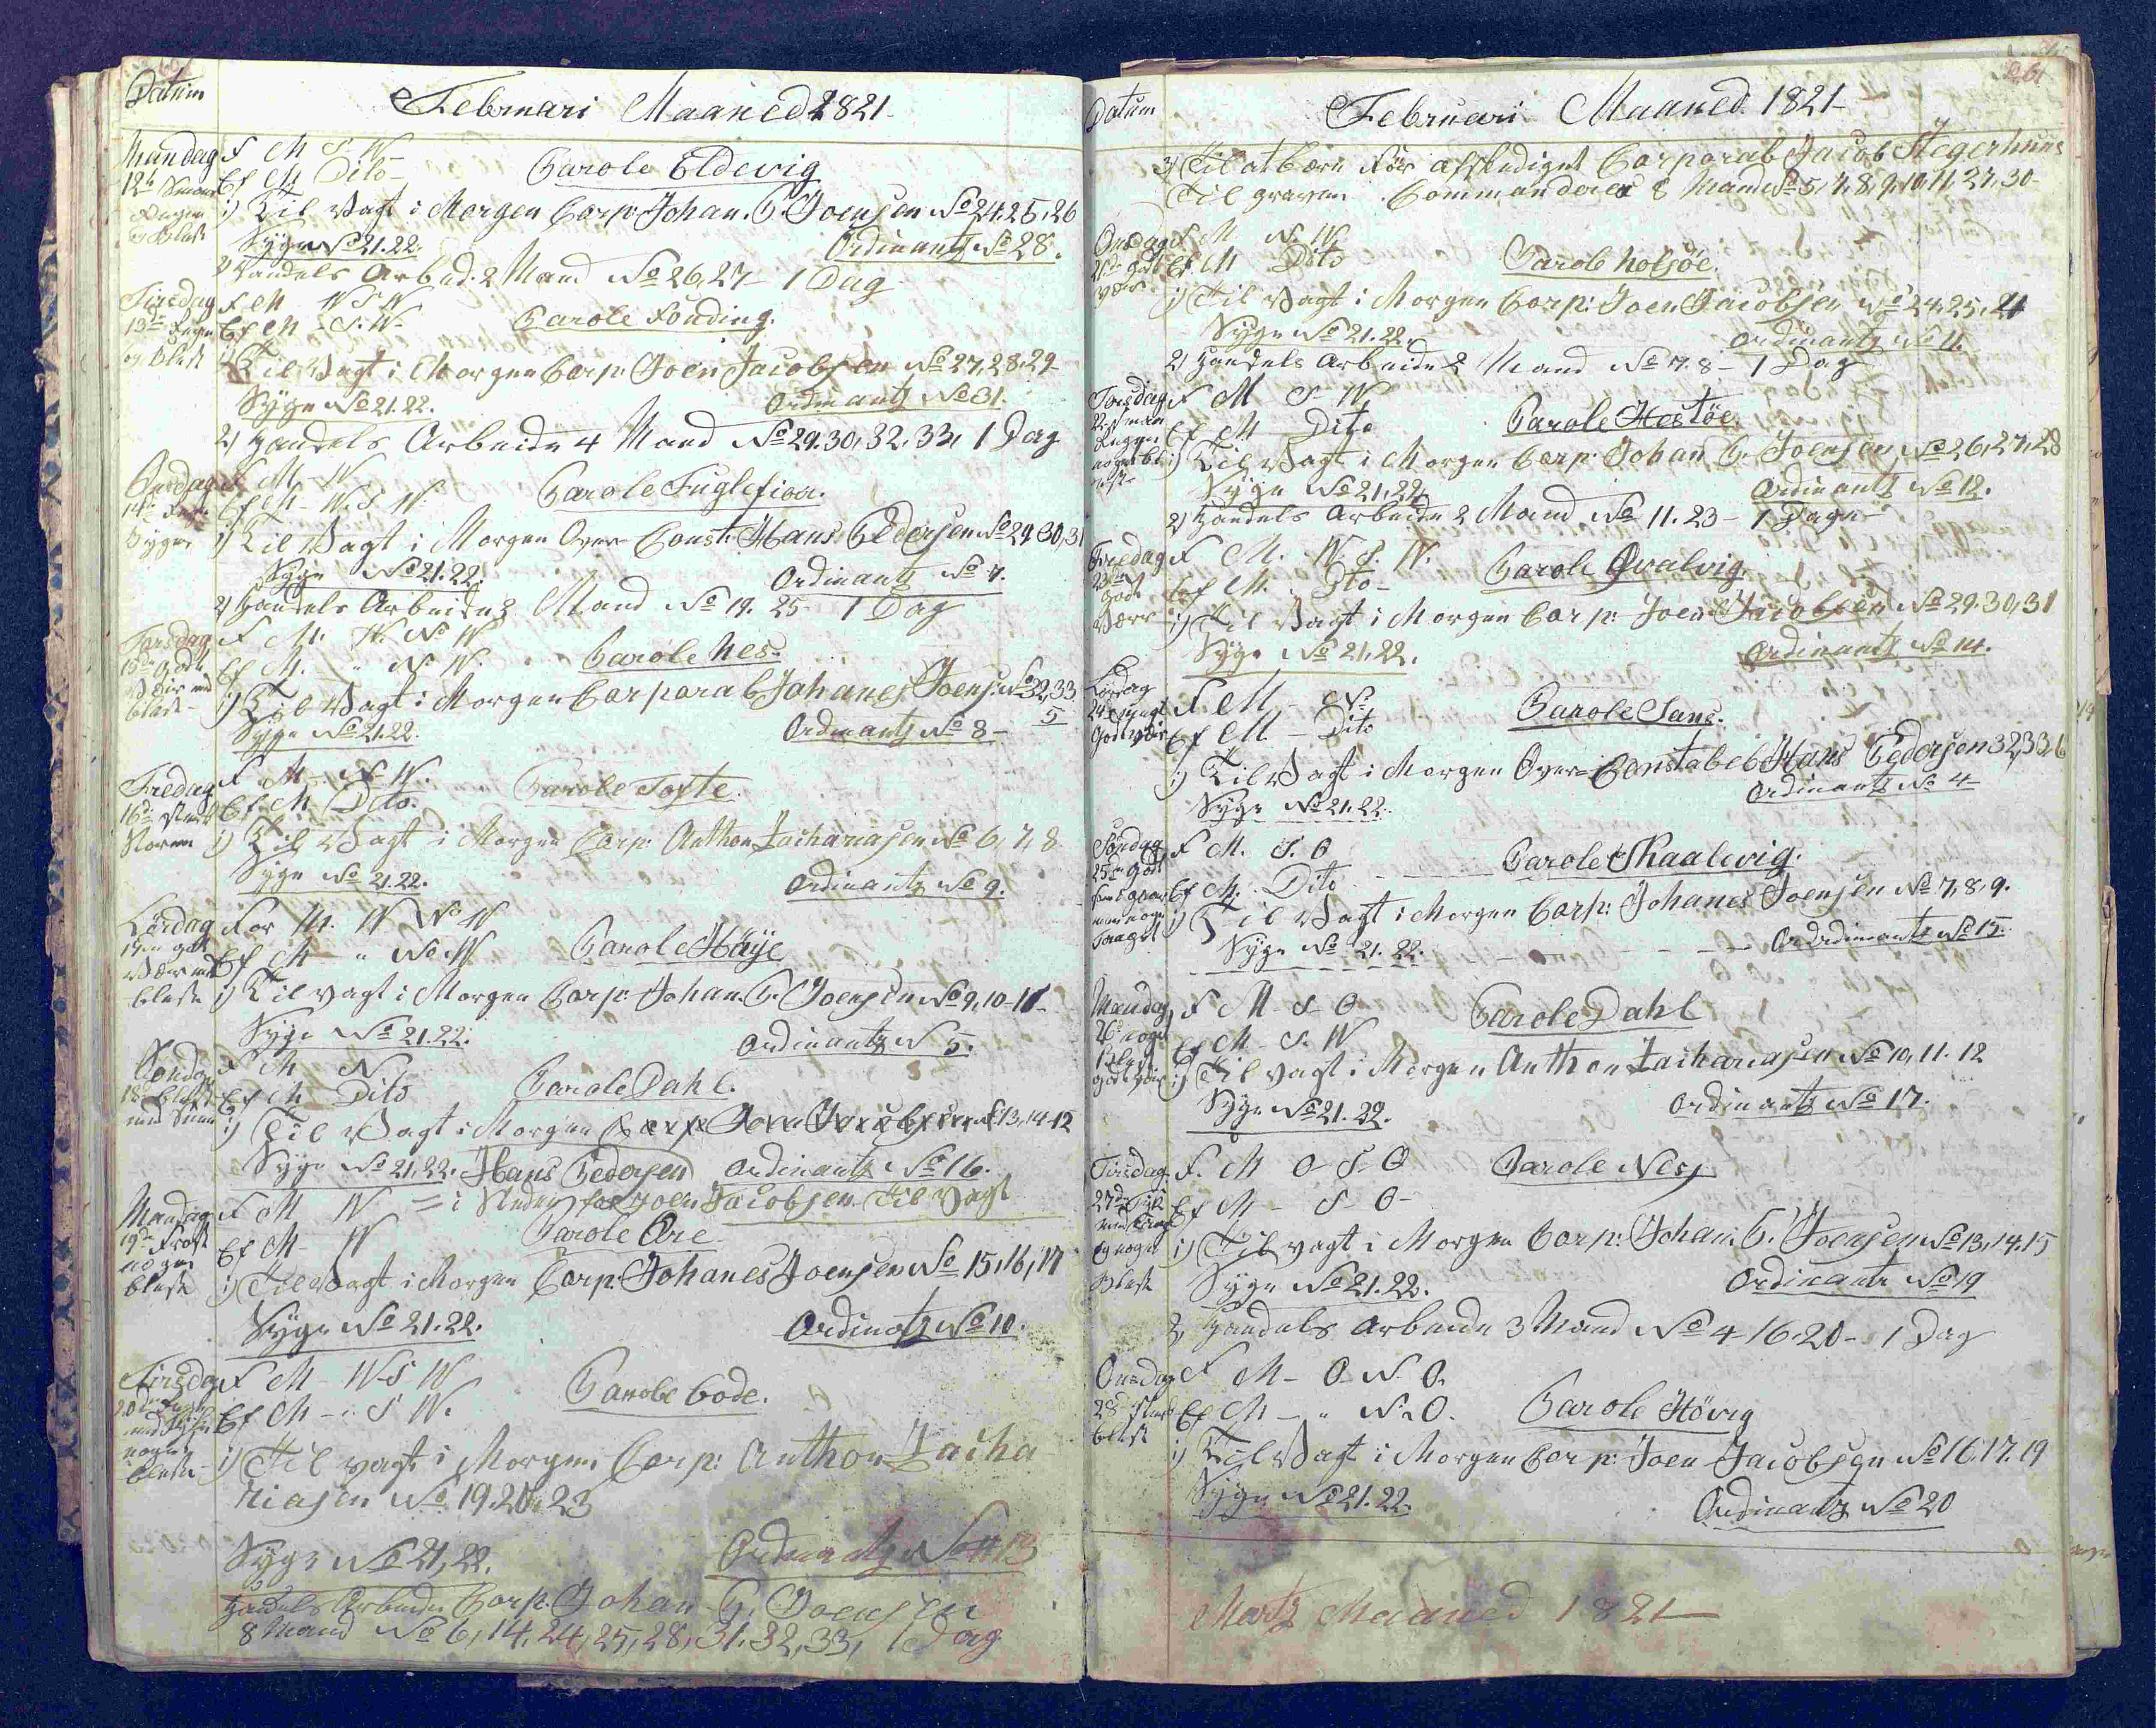 Datum
Februari Maaned 1821
Mandag F M S. W
12te Ef M Dito Parole Eldevig
1) Til Vagt i Morgen Corp: Johan. P. Joensen No 24, 25, 26
Syge No 21. 22. Ordinantz No 28.
2) Handels Arbeid. 2 Mand No 26, 27 - 1 Dag
Tirsdag F M W S W
13de Regn Ef M - S. W. Parole Fonding.
og Blæst 1) Til Vagt i Morgen Corp: Joen Jacobsen No 27, 28, 29
Syge No 21. 22. Ordinantz No 31.
2) Handels Arbeide 4 Mand No 29. 30, 32, 33, 1 Dag
Onsdag F M W
14de Ef M - W. S W. Parole Fuglefior.
1) Til Vagt i Morgen Over Const. Hans Pedersen No 29, 30, 31
Syge No 21. 22. Ordinantz No 7.
2) Handels Arbeide 2 Mand No 19. 25 - 1 Dag
Torsdag F M. W. No W
15de Godt Ef M. " N. W. Parole Nes.
Veir med
blæst 1) Til Vagt i Morgen Corporal Johanes Joens: No 32, 33
5
Syge No 21. 22. Ordinantz No 8 -
Fredag F M - N. W.
16de Ef M Dito. Parole Tofte.
Storm 1) Til Vagt i Morgen Corp: Anthon Zachariasen No 6, 7, 8
Syge No 21. 22. Ordinantz No 9.
Lørdag For M. W No W
17de godt Ef M - " No W Parole Høye
Vær med
blæst 1) Til vagt i Morgen Corp: Johan. P. Joensen No 9, 10 - 11 -
Syge No 21. 22. Ordinantz N 5.
Søndag F M N
18de blæst Ef M Dito Parole Dahl.
med 1) Til Vagt i Morgen Corp Joen Jacobsen No 13, 14 12
Syge No 21, 22. Hans Pedersen Ordinantz No 16.
Mandag F M W = i Steden for Joen Jacobsen til Vagt
19de Frost Ef M - W Parole Ore
nogen
blæst 1) Til Vagt i Morgen Corp: Johanes Joensen No 15, 16, 17
Syge No 21. 22. Ordinatz No 10.
Tirsdag F M - W S W
20de Ef M - " S W. Parole bode.
nogen
blæst 1) Til vagt i Morgen Corp: Anthon Zacha
riasen No 19. 20. 23
Syge No 21, 22. Ordinantz No 13
Handels Arbeide Corp. Johan P. Joensen
8 Mand No 6, 14, 24, 25, 28, 31, 32, 33, 1 Dag
261
Datum
Februari Maaned. 1821
3) Til at bære Før afskediget Corporal Jacob Stegerhuus
Til graven Commanderes 8 Mand No 5, 7, 8, 9, 10, 11, 27, 30
Onsdag F M N W
21de godt Ef M Dito Parole Nolsøe.
vær 1) Til Vagt i Morgen Corp: Joen Jacobsen No 24, 25, 4
Syge No 21. 22. Ordinantz No 11.
2) Handels Arbeide 2 Mand No 7. 8 - 1 Dag
Torsdag F M S W
22de Ef M Dito Parole Hestøe.
1) Til Vagt i Morgen Corp: Johan P. Joensen No 26, 27, 28
Syge No 21. 22. Ordinantz No 12.
2) Handels Arbeide 2 Mand No 11. 23 - 1 Dage
Fredag F M. W. S. W.
23de Godt Ef M. " Dito - Parole Qvalvig
Værr 1) Til Vagt i Morgen Corp: Joen Jacobsen No 29. 30, 31
Syge No 21, 22. Ordinantz No 14.
Lørdag F M - No
24de Godt vær Ef M - Dito Parole Sans.
1) Til Vagt i Morgen Over-Constabel Hans Pedersen 32, 33, 6
Syge No 21. 22. Ordinantz No 4 -
Søndag F M. S. O
25de Godt Ef M. Dito - Parole Skaalevig.
1) Til Vagt i Morgen Corp: Johanes Joensen No 7, 8, 9.
Syge No 21. 22. - Ordrdinantz No 15.
Mandag F M - S - O
26de noget Ef M - S. W Parole Dahl
godt Vær 1) Til vagt i Morgen Anthon Zachariasen No 10, 11. 12
Syge No 21. 22. Ordinantz No 17.
Tirsdag F. M O - S - O Parole Nesz
27de Ef M - S - O -
og noget 1) Til vagt i Morgen Corp: Johan. P. Joensen No 13, 14. 15
Blæst Syge No 21. 22. Ordinantz No 19
2) Handels Arbeide 3 Mand No 4 16. 20 - 1 Dag
Onsdag F M - O. N. O.
28de Ef M - " N. O. Parole Høvig
blæst 1) Til Vagt i Morgen Corp: Joen Jacobsen No 16. 17. 19
Syge No 21. 22. Ordinantz No 20
Martz Maaned 1821